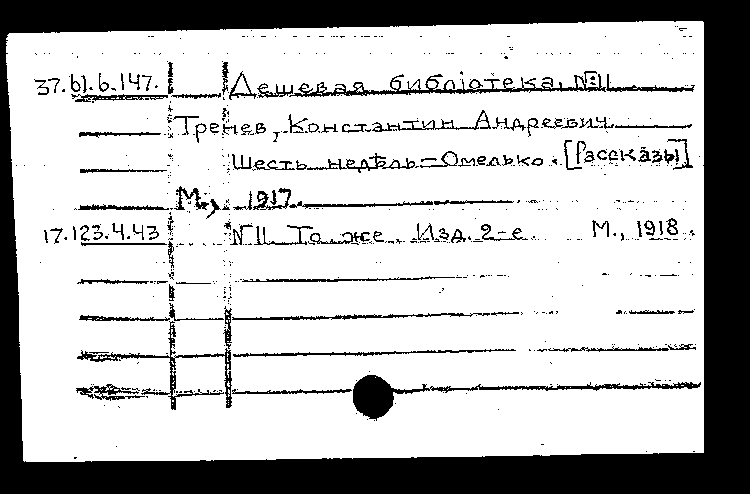 37.61.6.147. Дешевая библіотека, № 11
Тренев, Константин Андреевич.
Шесть недѣль – Омелько. [Рассказы]
М., 1917.
17.123.4.43 № 11. То же. Изд. 2-е. М., 1918.